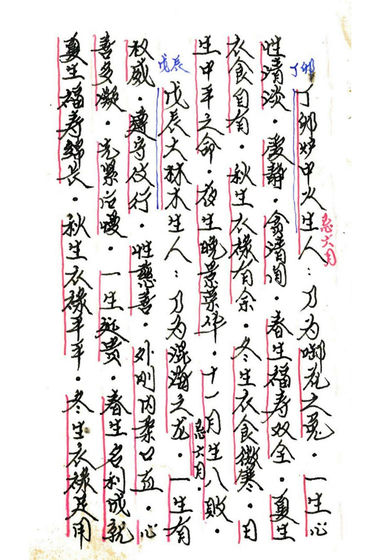 丁卯
丁卯炉中火生人：乃为啣花之兔。一生心
忌六月
性清淡。爱静。贪清闲。春生福寿双全。夏生
衣食自有。秋生衣禄有余。冬生衣食微寒。日
生中平之命。夜生晚景荣华。十一月生八败。
戊辰
戊辰大林木生人：乃为混海之龙。一生有
忌六月。
权威。遵守行。性慈善。外刚内柔口直。心
喜多凝。先紧后慢。一生贵。春生名利成就
夏生福寿绵长。秋生衣禄平平。冬生衣禄足用